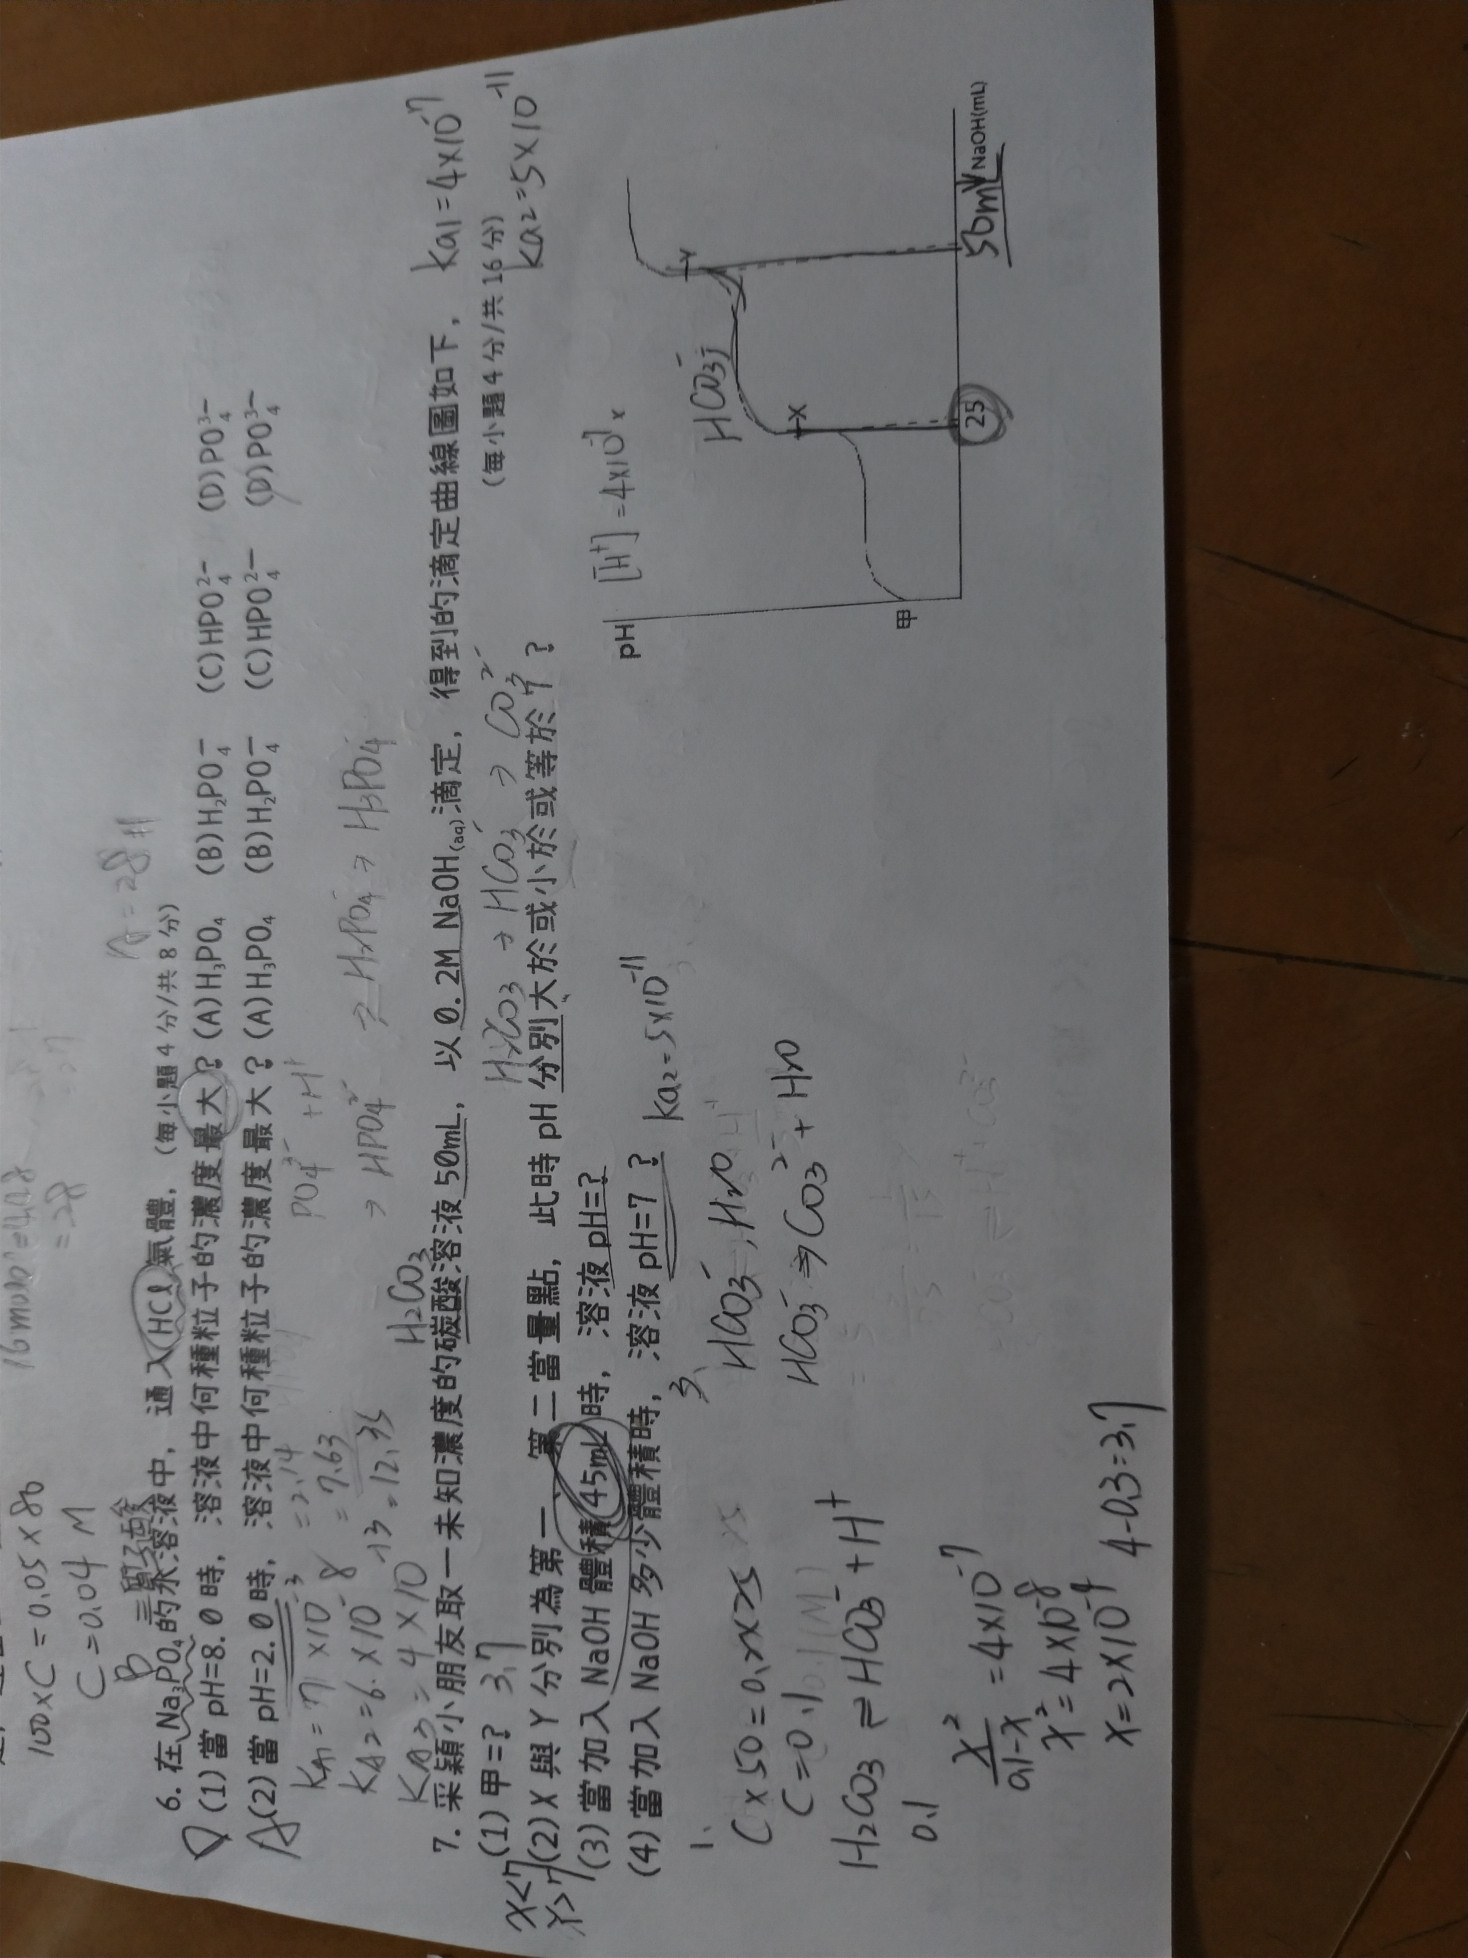 16mmol
=28
100×C=0.05×80
C=0.04 M
A=28#
6. 在Na₃PO₄的水溶液中，通入HCl氣體，(每小題4分/共8分)
(1)當pH=8.0時，溶液中何種粒子的濃度最大？(A)H₃PO₄ (B)H₂PO₄⁻ (C)HPO₄²⁻ (D)PO₄³⁻
A(2)當pH=2.0時，溶液中何種粒子的濃度最大？(A)H₃PO₄ (B)H₂PO₄⁻ (C)HPO₄²⁻ (D)PO₄³⁻
KA1=7.1×10⁻³ =2.14
KA2=6.×10⁻⁸ =7.63
KA3=4×10⁻¹³=12.35
PO₄³⁻ +H⁺
→HPO₄²⁻ → H₂PO₄⁻→H₃PO₄
H₂CO₃
7. 采穎小朋友取一未知濃度的碳酸溶液50mL，以0.2M NaOH(aq)滴定，得到的滴定曲線圖如下，
ka1=4×10⁻⁷
(每小題4分/共16分)
ka2=5×10⁻¹¹
H₂CO₃→HCO₃⁻→CO₃²⁻
(1)甲=？ 3.7
(2)X與Y分別為第一、第二當量點，此時pH分別大於或小於或等於7？
X<7
Y>7
(3)當加入NaOH體積45mL時，溶液pH=？
(4)當加入NaOH多少體積時，溶液pH=7？
ka2=5×10⁻¹¹
[H⁺]=4×10⁻⁷ x
pH
HCO₃⁻
Y
X
甲
25
50mL
V NaOH(mL)
1.
C×50=0.2×25
C=0.1(M)
H₂CO₃⇌HCO₃⁻+H⁺
0.1
x²/0.1-x=4×10⁻⁷
x²=4×10⁻⁸
x=2×10⁻⁴ 4-0.3=3.7
3、
HCO₃⁻,H₂O
HCO₃⁻→CO₃²⁻+H₂O